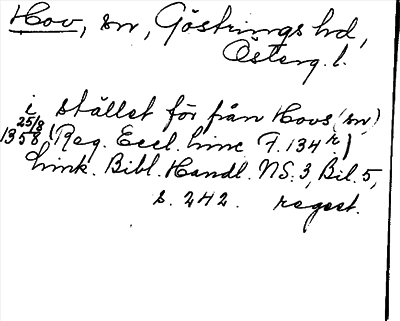 Hov, sn, Göstrings hd,
Österg. l.
i stället för från Hovs (sn)
25/8
1358 (Reg. Eccl. Linc F. 134 r)
Link. Bibl. Handl. NS. 3, Bil. 5,
s. 242. regest.